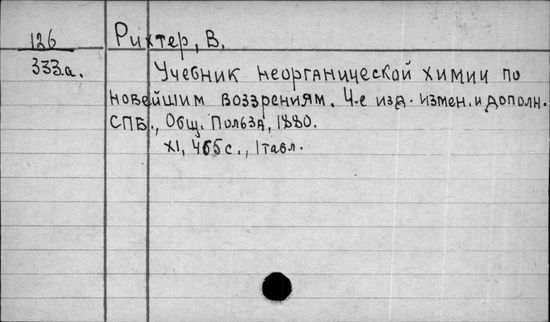 126 Рихтер, В.
333.а. Учебник неорганической химии по
новейшим воззрениям. 4-е изд. измен. и дополн.
СПБ., Общ. Польза, 1880.
XI, 465 с., 1 табл.